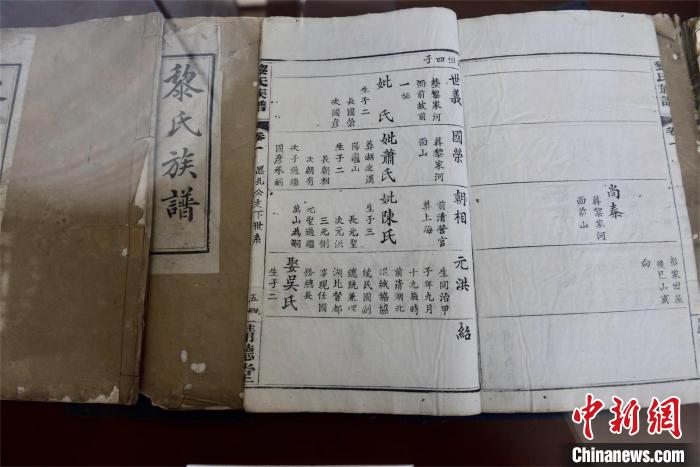 黎氏族譜
黎氏族譜
卷一
思孔公支下世系
五
世義
葬黎家河
西前坡前
一揷
妣氏
生子二
長國榮
次國彥
國榮
葬黎家河
西山
妣蕭氏
葬湖北漢
陽龜山
生子二
長朝相
次朝有
次子過繼
國彥承嗣
朝相
前清營官
葬上海
妣陳氏
生子三
長元聖
次元洪
三元釗
元聖過繼
萬山為嗣
元洪
生同治甲
子年九月
十九辰時
前清湖北
混成協協
統民國副
總統兼理
湖北督都
事現任國
務總長
娶吳氏
生子二
紹
尚秦
葬黎家河
西前山
葬家田屋
後巳山亥
向
黎氏族譜
卷一
中新网
Chinanews.com